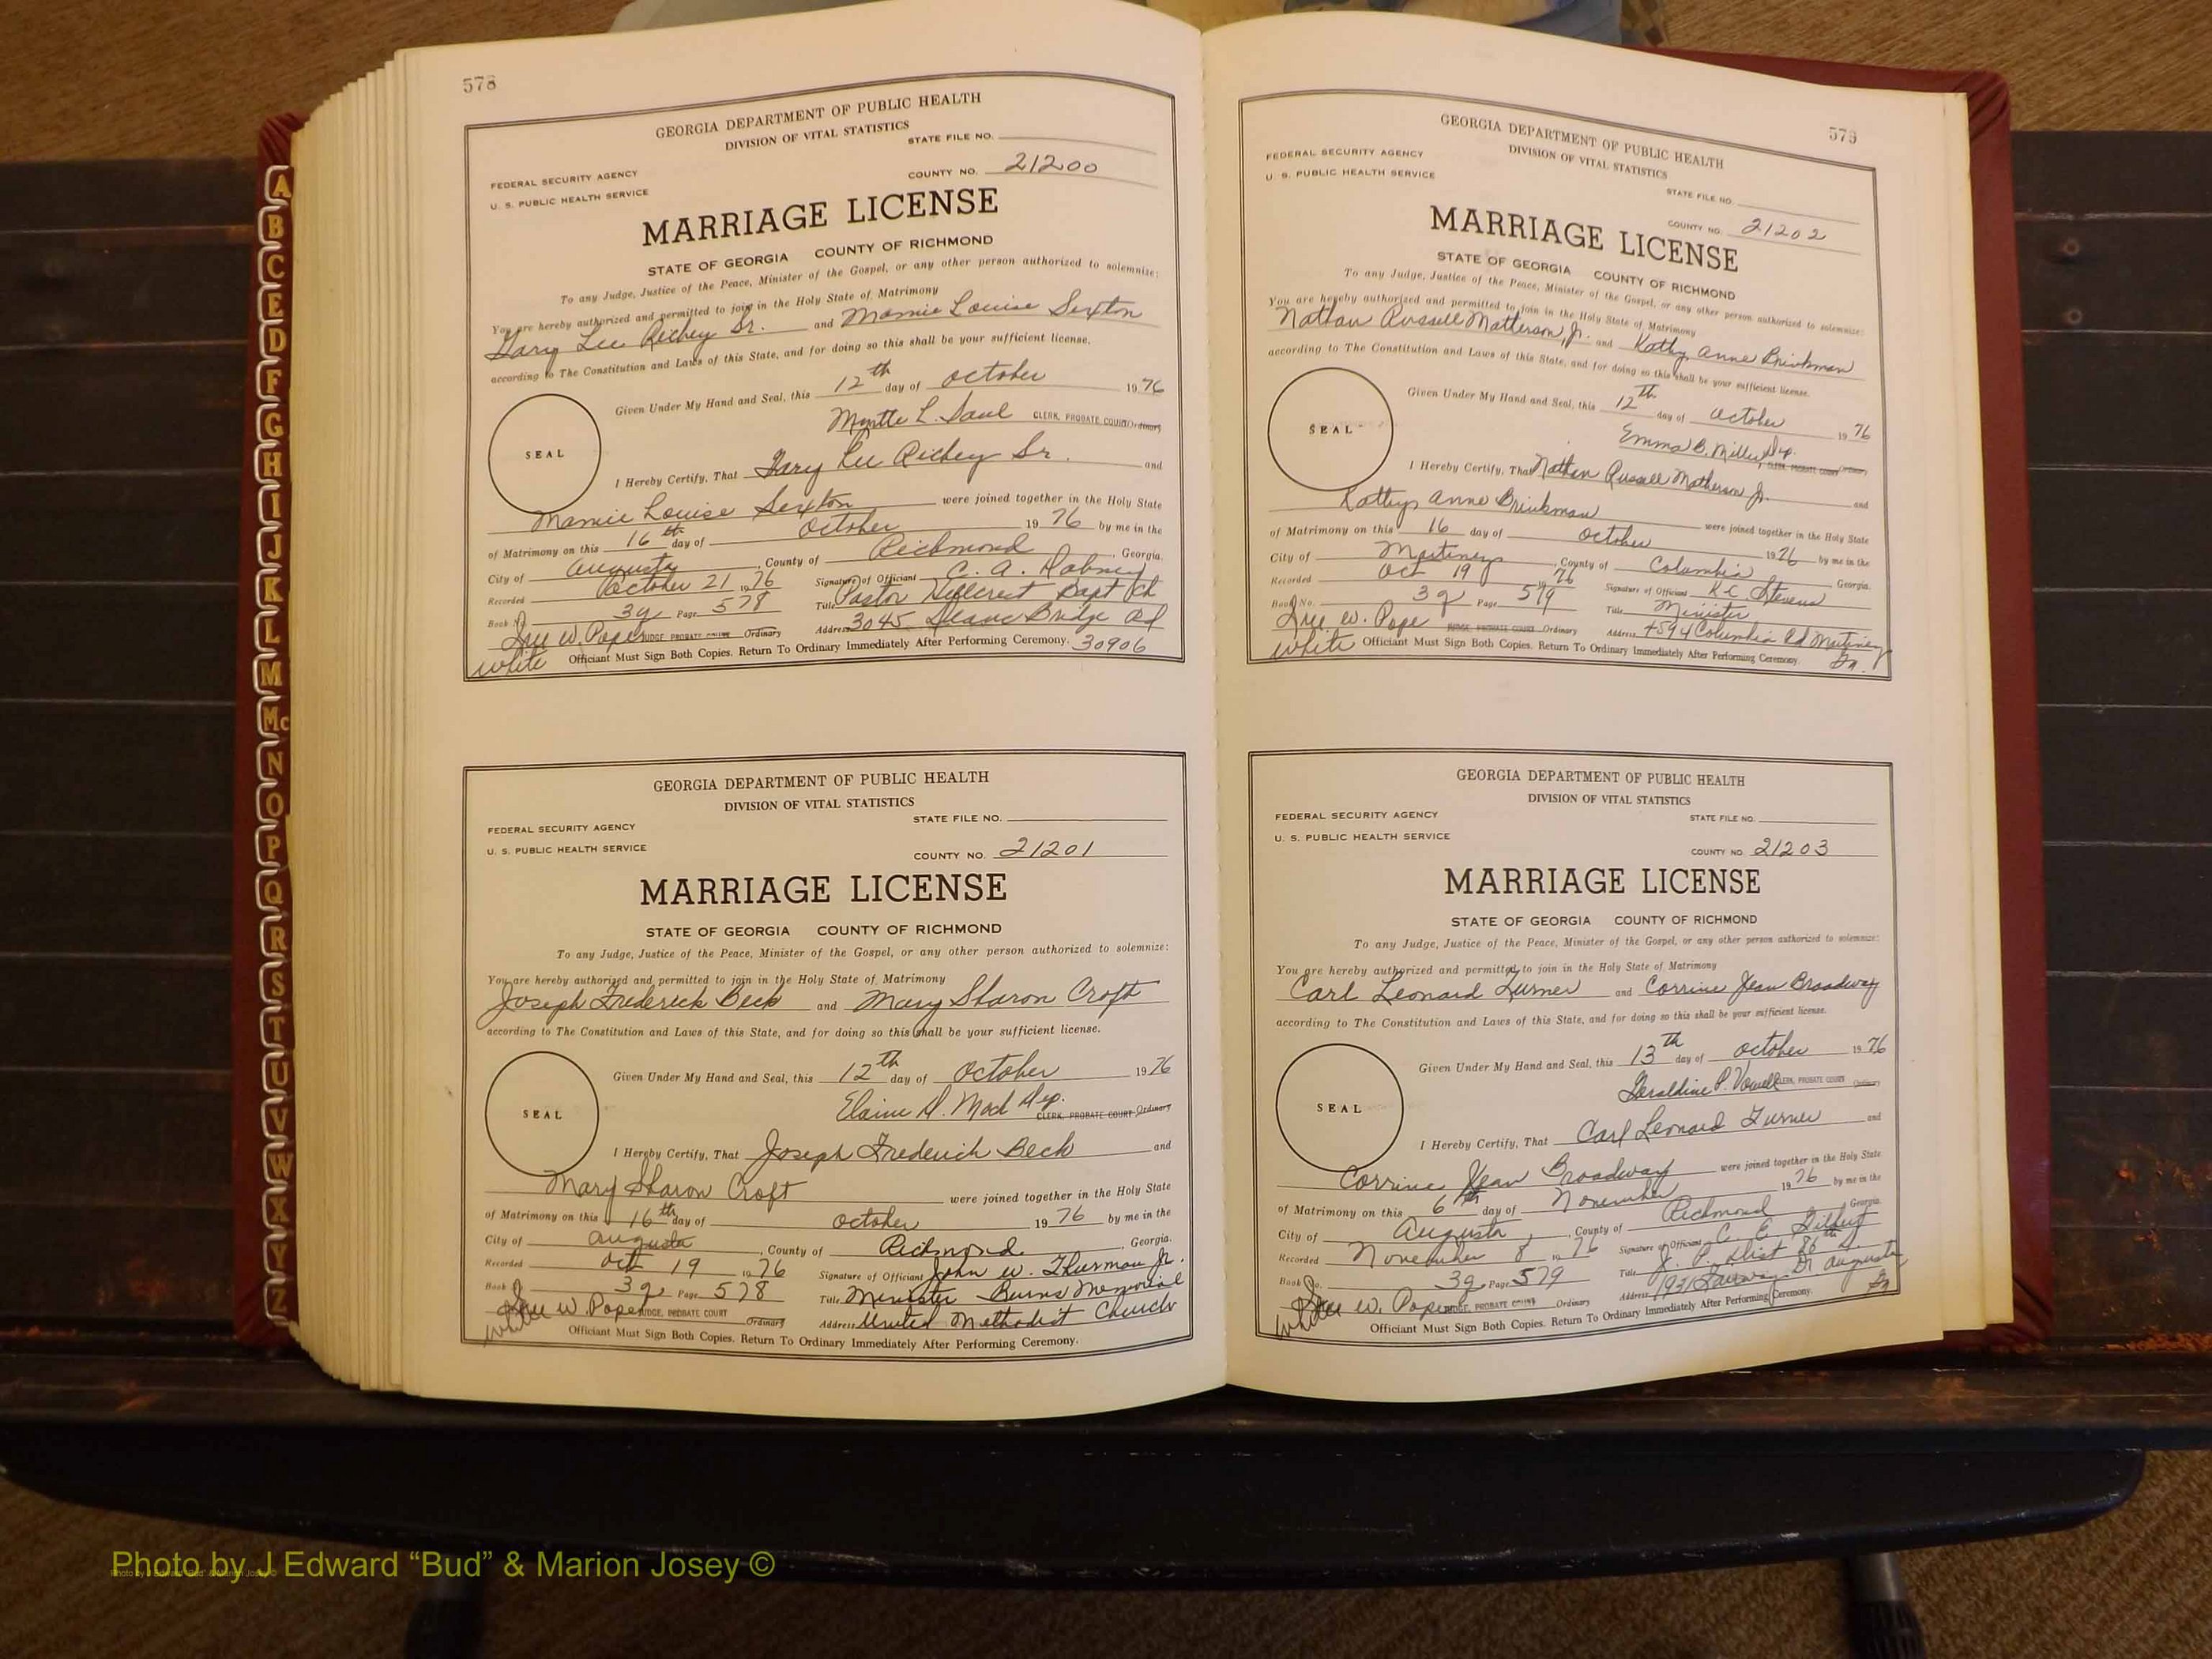 578
GEORGIA DEPARTMENT OF PUBLIC HEALTH
DIVISION OF VITAL STATISTICS
STATE FILE NO.
FEDERAL SECURITY AGENCY
U. S. PUBLIC HEALTH SERVICE
COUNTY NO. 21200
MARRIAGE LICENSE
STATE OF GEORGIA COUNTY OF RICHMOND
To any Judge, Justice of the Peace, Minister of the Gospel, or any other person authorized to solemnize:
You are hereby authorized and permitted to join in the Holy State of Matrimony
Gary Lee Richey Sr. and Mamie Louise Sexton
according to The Constitution and Laws of this State, and for doing so this shall be your sufficient license.
Given Under My Hand and Seal, this 12th day of October 1976
Myrtle L. Saul CLERK, PROBATE COURT Ordinary
SEAL
I Hereby Certify, That Gary Lee Richey Sr. and
Mamie Louise Sexton were joined together in the Holy State
of Matrimony on this 16th day of October 1976 by me in the
City of Augusta, County of Richmond, Georgia.
Recorded October 21 1976 Signature of Official C. A. Dabney
Book No. 3g Page 578 Title Pastor Hillcrest Bapt Ch
Sue W. Pope JUDGE, PROBATE COURT Ordinary Address 3045 Deans Bridge Rd
white Officiant Must Sign Both Copies. Return To Ordinary Immediately After Performing Ceremony. 30906
GEORGIA DEPARTMENT OF PUBLIC HEALTH
DIVISION OF VITAL STATISTICS
STATE FILE NO.
FEDERAL SECURITY AGENCY
U. S. PUBLIC HEALTH SERVICE
COUNTY NO. 21201
MARRIAGE LICENSE
STATE OF GEORGIA COUNTY OF RICHMOND
To any Judge, Justice of the Peace, Minister of the Gospel, or any other person authorized to solemnize:
You are hereby authorized and permitted to join in the Holy State of Matrimony
Joseph Frederick Beck and Mary Sharon Croft
according to The Constitution and Laws of this State, and for doing so this shall be your sufficient license.
Given Under My Hand and Seal, this 12th day of October 1976
Elaine D. Dep. CLERK, PROBATE COURT Ordinary
SEAL
I Hereby Certify, That Joseph Frederick Beck and
Mary Sharon Croft were joined together in the Holy State
of Matrimony on this 16th day of October 1976 by me in the
City of Augusta, County of Richmond, Georgia.
Recorded Oct 19 1976 Signature of Official John W. Thurman Jr.
Book 3g Page 578 Title Minister Burns Memorial
Sue W. Pope JUDGE, PROBATE COURT Ordinary Address United Methodist Church
white Officiant Must Sign Both Copies. Return To Ordinary Immediately After Performing Ceremony.
579
GEORGIA DEPARTMENT OF PUBLIC HEALTH
DIVISION OF VITAL STATISTICS
FEDERAL SECURITY AGENCY
U. S. PUBLIC HEALTH SERVICE
STATE FILE NO.
COUNTY NO. 21202
MARRIAGE LICENSE
STATE OF GEORGIA COUNTY OF RICHMOND
To any Judge, Justice of the Peace, Minister of the Gospel, or any other person authorized to solemnize:
You are hereby authorized and permitted to join in the Holy State of Matrimony
Nathan Russell Matherson, Jr. and Kathy Anne Brinkman
according to The Constitution and Laws of this State, and for doing so this shall be your sufficient license.
Given Under My Hand and Seal, this 12th day of October 1976
Emma B. Miller Dep. CLERK, PROBATE COURT Ordinary
SEAL
I Hereby Certify, That Nathan Russell Matherson Jr. and
Kathy Anne Brinkman were joined together in the Holy State
of Matrimony on this 16 day of October 1976 by me in the
City of Martinez, County of Columbia Georgia.
Recorded Oct 19 1976 Signature of Official K.C. Stevens
Book No. 3g Page 579 Title Minister
Sue W. Pope JUDGE, PROBATE COURT Ordinary Address 4594 Columbia Rd Martinez
white Officiant Must Sign Both Copies. Return To Ordinary Immediately After Performing Ceremony. Ga.
GEORGIA DEPARTMENT OF PUBLIC HEALTH
DIVISION OF VITAL STATISTICS
FEDERAL SECURITY AGENCY
STATE FILE NO.
U. S. PUBLIC HEALTH SERVICE
COUNTY NO. 21203
MARRIAGE LICENSE
STATE OF GEORGIA COUNTY OF RICHMOND
To any Judge, Justice of the Peace, Minister of the Gospel, or any other person authorized to solemnize:
You are hereby authorized and permitted to join in the Holy State of Matrimony
Carl Leonard Turner and Corrine Jean Broadway
according to The Constitution and Laws of this State, and for doing so this shall be your sufficient license.
Given Under My Hand and Seal, this 13th day of October 1976
Geraldine P. Vowell CLERK, PROBATE COURT Ordinary
SEAL
I Hereby Certify, That Carl Leonard Turner and
Corrine Jean Broadway were joined together in the Holy State
of Matrimony on this 6th day of November 1976 by me in the
City of Augusta, County of Richmond Georgia.
Recorded November 8 1976 Signature of Official C. E. Gilbert
Book No. 3g Page 579 Title J. P. Dist 86th
Sue W. Pope JUDGE, PROBATE COURT Ordinary Address 1931 Dr Augusta
white Officiant Must Sign Both Copies. Return To Ordinary Immediately After Performing Ceremony. Ga
A
B
C
E
D
F
G
H
I
J
K
L
M
Mc
N
O
P
Q
R
S
T
U
V
W
X
Y
Z
Photo by J Edward "Bud" & Marion Josey ©
Photo by J Edward "Bud" & Marion Josey ©